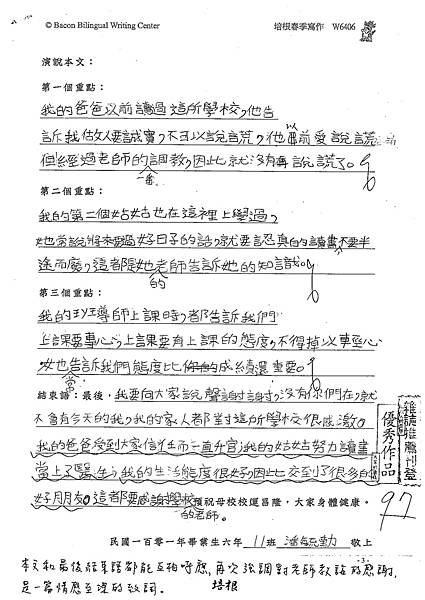 © Bacon Bilingual Writing Center 培根春季寫作 W6406
演說本文：
第一個重點：
我的爸爸以前讀過這所學校，他告
訴我做人要誠實，不可以說謊，他以前愛說謊
但經過老師的一番調教，因此就沒有再說謊了。
第二個重點：
我的第二個姑姑也在這裡上學過，
她常說將來要過好日子的話，就要認真的讀書不要半
途而廢，這都是她的老師告訴她的知識。
第三個重點：
我的班導師上課時，都告訴我們
上課要專心，上課要有上課的態度，不得掉以輕心
她也常告訴我們態度比你的成績還重要。
結束語：最後，我要向大家說聲謝謝，沒有你們在，就
不會有今天的我，我的家人都對這所學校很感激。
我的爸爸受到大家信任而一直升官；我的姑姑努力讀書
當上了醫生；我的生活態度很好，因此交到了很多的
好朋友。這都要感謝學校的老師。預祝母校校運昌隆，大家身體健康。
民國一百零一年畢業生六年 11班 潘毓勤 敬上
雜誌推薦刊登
優秀作品
97
本文和最後結束語都能互相呼應，再次強調對老師教誨的感謝，
是一篇情應至達的致詞。 培根